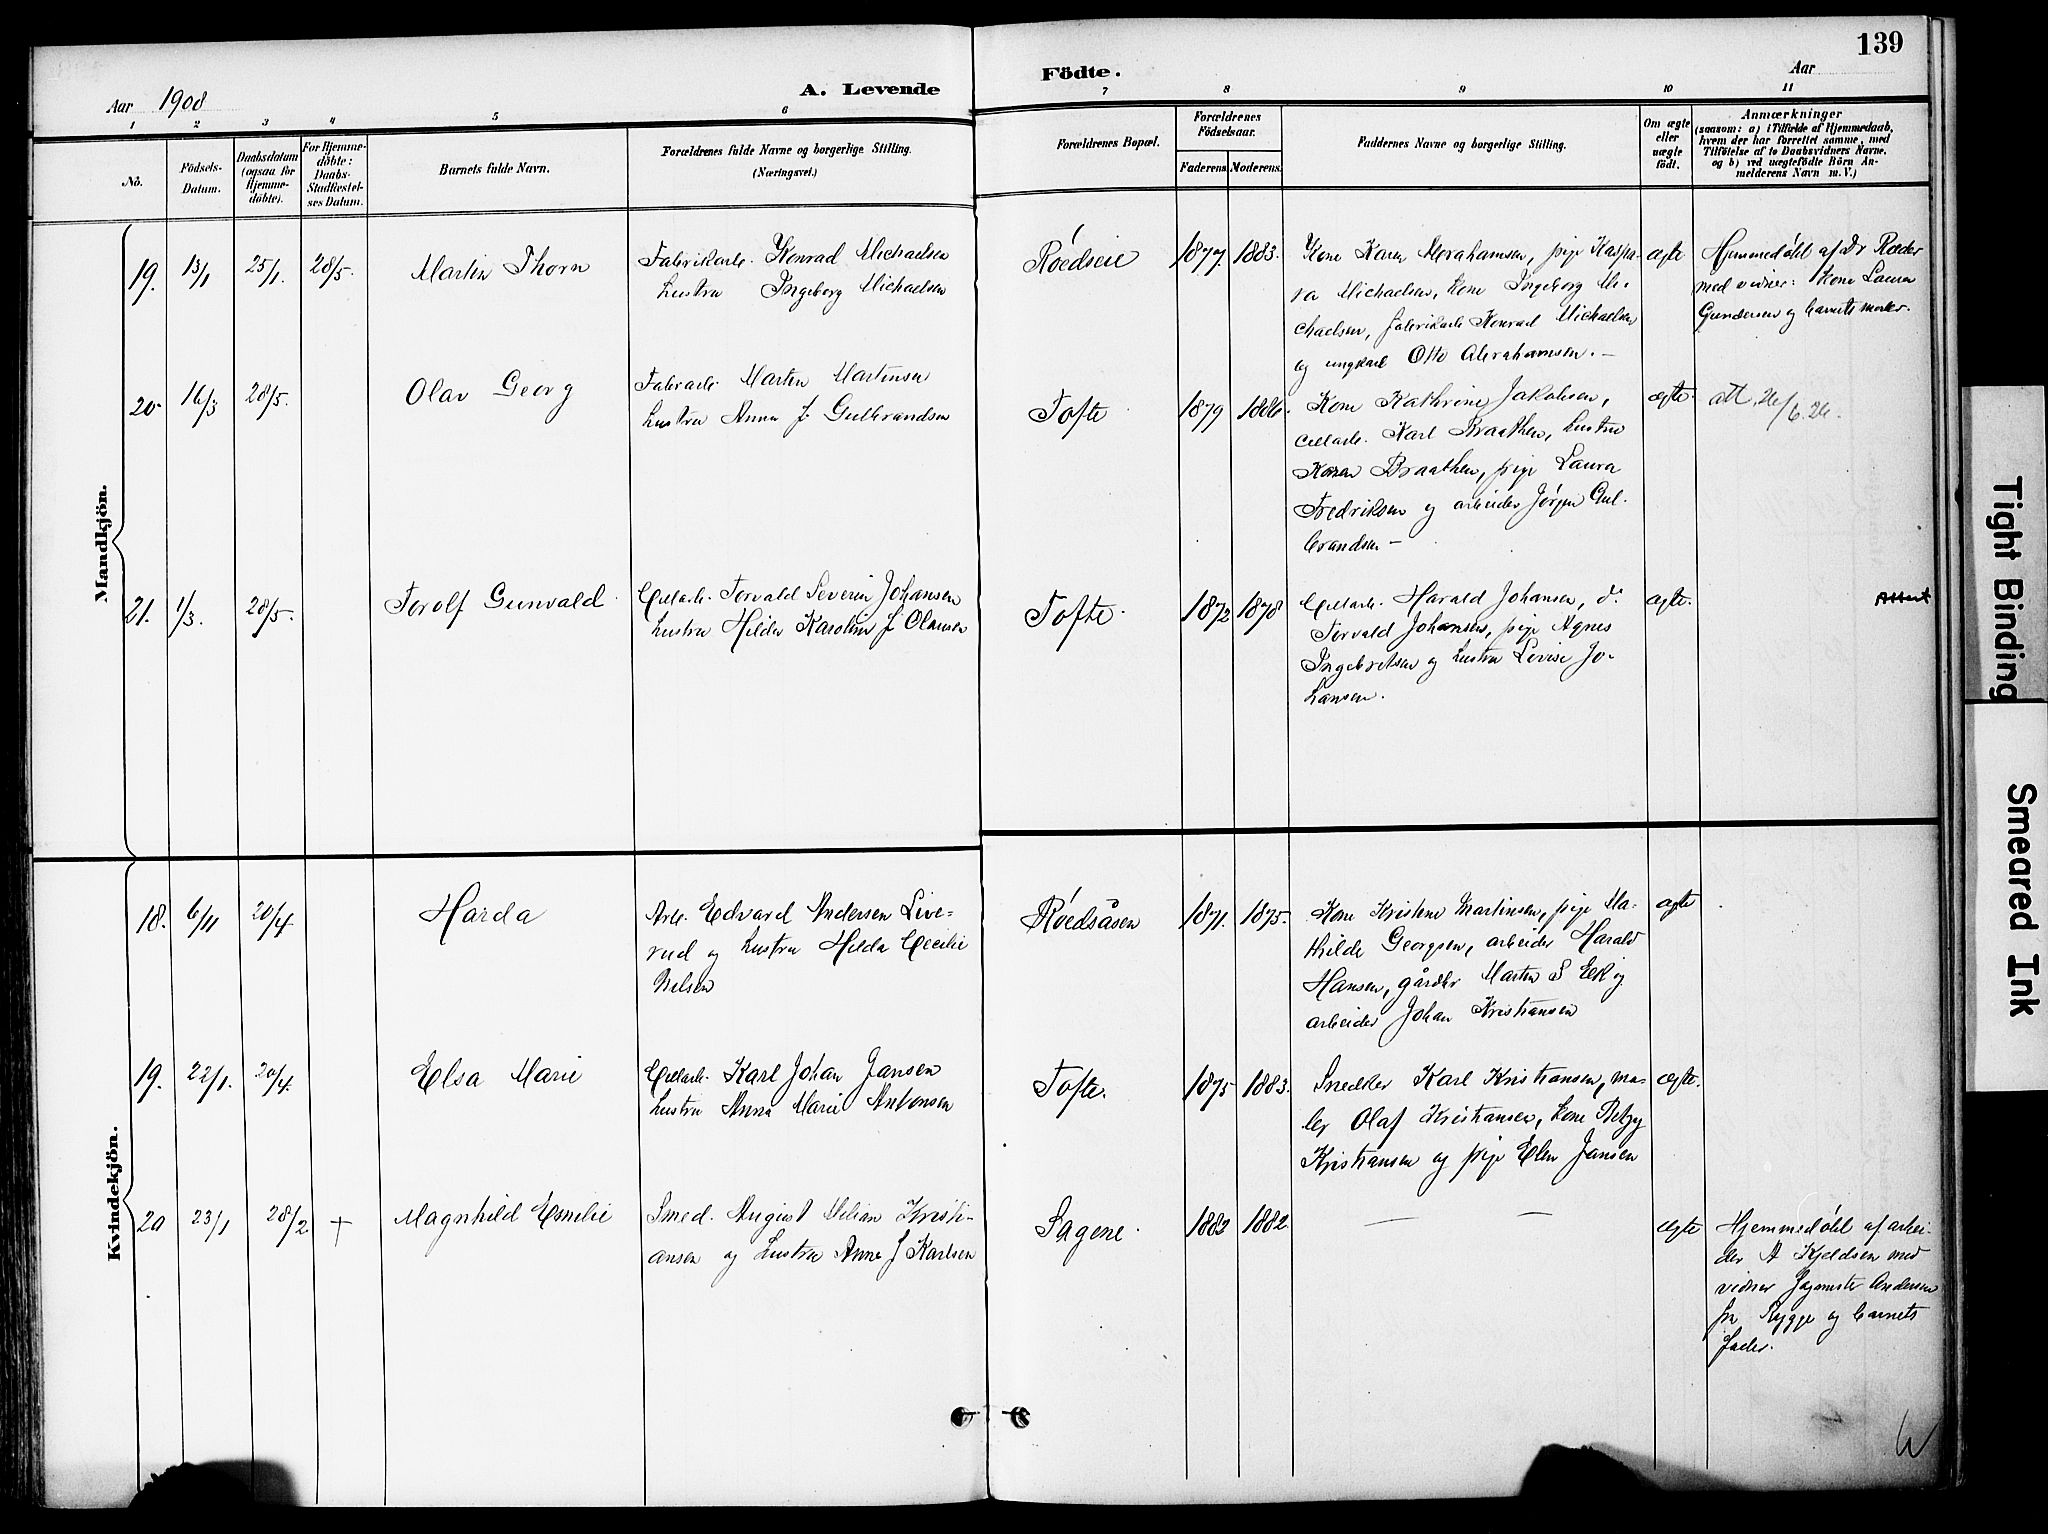 139
Aar 1908
A. Levende
Födte.
Aar
1 2 3 4 5 6 7 8 9 10 11
No.
Födsels-
Datum.
Daabsdatum
(ogsaa for
Hjemme-
döbte).
For Hjemme-
döbte:
Daabs-
Stadfæstel-
ses Datum.
Barnets fulde Navn.
Forældrenes fulde Navne og borgerlige Stilling.
(Næringsvei.)
Forældrenes Bopæl.
Forældrenes
Födselsaar.
Faderens. Moderens.
Faddernes Navne og borgerlige Stilling.
Om ægte
eller
uægte
födt.
Anmærkninger
(saasom: a) i Tilfælde af Hjemmedaab,
hvem der har forrettet samme, med
Tilföielse af to Daabsvidners Navne,
og b) ved uægtefödte Börn An-
melderens Navn m. V.)
Mandkjön.
19. 13/1 25/1. 28/5. Martin Thorn
Fabrikarb. Konrad Michaelsen
hustru Ingeborg Michaelsen
Röedseie 1877. 1883.
Kone Karen Abrahamsen, pige Kaspa-
ra Michaelsen, kone Ingeborg Mi-
chaelsen, fabrikarb Konrad Michaelsen
og ungkarl Otto Abrahamsen.-
ægte
Hjemmedöbt af Dr Ræder
med vidner: Kone Laura
Gundersen og barnets moder.
20. 16/3 28/5. Olav Georg
Fabrarb. Martin Martinsen
hustru Anna f. Gulbrandsen
Tofte 1879 1886.
Kone Kathrine Jakobsen,
cellarb. Karl Braathen, hustru
Karen Braathen, pige Laura
Fredriksen og arbeider Jörgen Gul-
brandsen-
ægte. att. 26/6.26.
21. 1/3. 28/5. Torolf Gunvald.
Cellarb. Torvald Severin Johansen
hustru Hilda Karoline f Olausen
Tofte. 1872 1878
Cellarb. Harald Johansen, do
Torvald Johansen, pige Agnes
Ingebretsen og hustru Lovise Jo-
hansen.
ægte.
Attest
Kvindekjön.
18. 6/11 20/4. Harda
Arb. Edvard Andersen Live-
rud og hustru Hilda Cecilie
Nilsen
Röedsåsen 1871. 1875.
Kone Kristine Martinsen, pige Ma-
thilde Georgsen, arbeider Harald
Hansen, gårdbr Martin S Eek og
arbeider Johan Kristiansen
ægte
19. 22/1. 20/4. Elsa Marie
Cellarb. Karl Johan Jansen
hustru Anna Marie Antonsen
Tofte. 1875 1883.
Snedker Karl Kristiansen, ma-
ler Olaf Kristiansen, kone Betzy
Kristiansen og pige Elen Jansen
ægte.
20 23/1 28/2 + Magnhild Emilie
Smed. August Kristi-
ansen og hustru Anna f Karlsen
Sagene. 1882 1882
— —
ægte
Hjemmedöbt af arbei-
der A Kjeldsen med
vidner Andersen
fra Rygge og barnets
fader.
Tight Binding
Smeared Ink